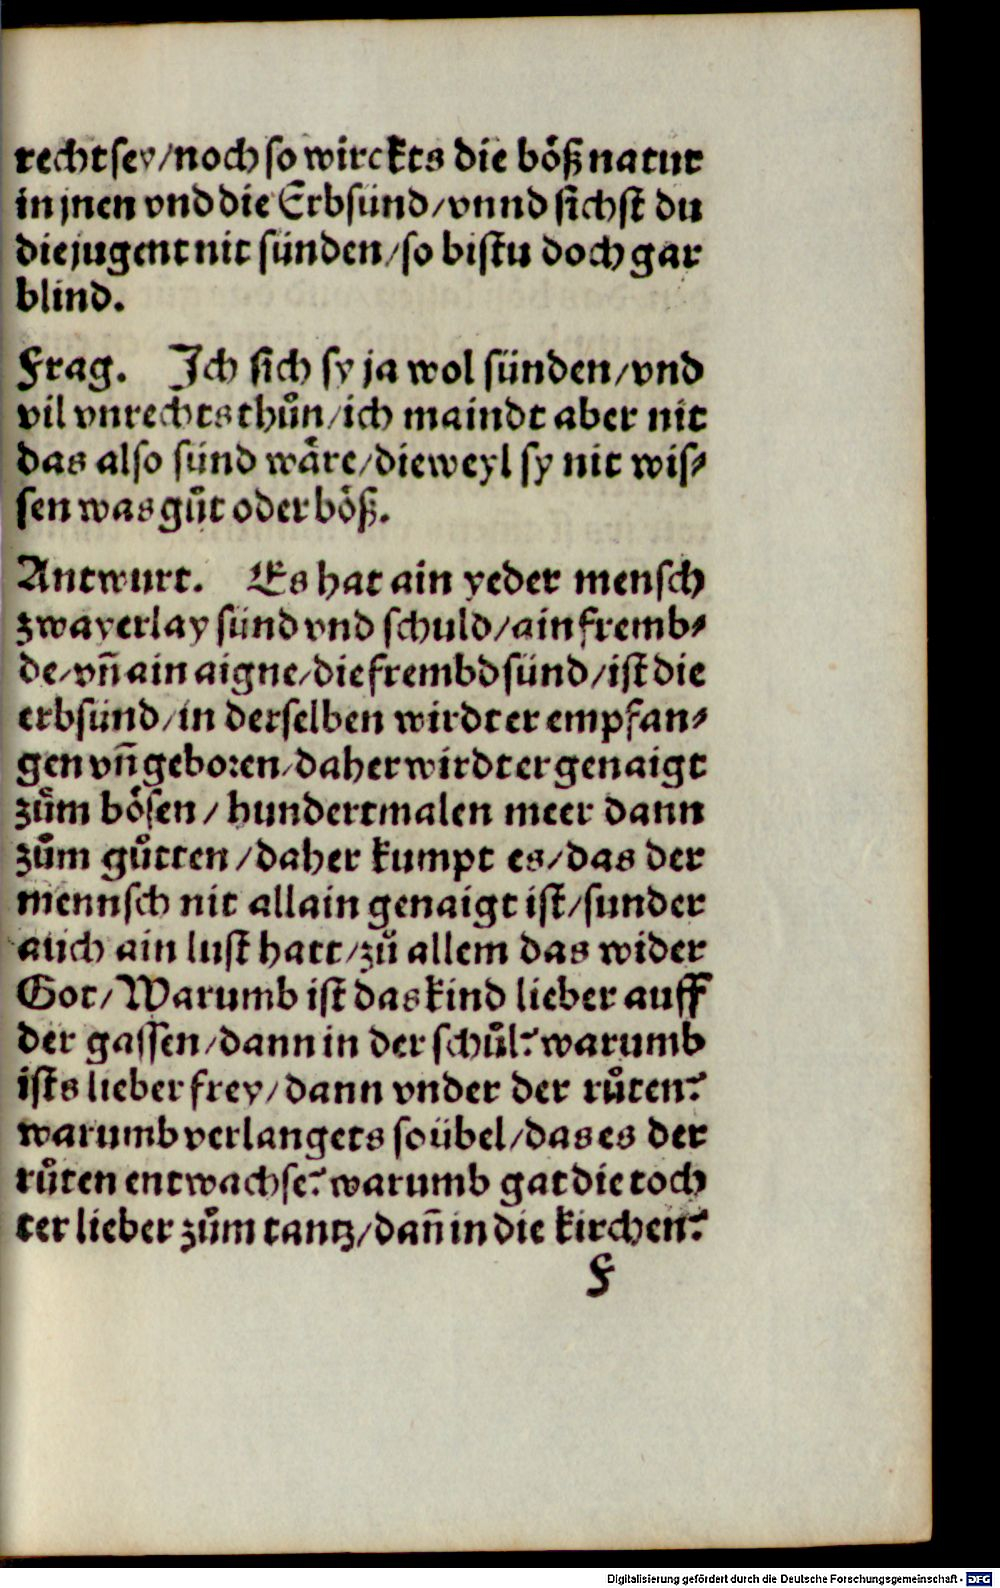 recht sey/noch so wirckts die böß natur
in jnen vnd die Erbsünd/vnnd sichst du
die jugent nit sünden/so bistu doch gar
blind.
Frag. Ich sich sy ja wol sünden/vnd
vil vnrechts thůn/ich maindt aber nit
das also sünd wäre/dieweyl sy nit wis⸗
sen was gůt oder böß.
Antwurt. Es hat ain yeder mensch
zwayerlay sünd vnd schuld/ain fremb⸗
de/vñ ain aigne/die frembd sünd/ist die
erbsünd/in derselben wirdt er empfan⸗
gen vñ geboren/daher wirdt er genaigt
zům bösen/hundertmalen meer dann
zům gůtten/daher kumpt es/das der
mennsch nit allain genaigt ist/sunder
auch ain lust hatt/zů allem das wider
Got/Warumb ist das kind lieber auff
der gassen/dann in der schůl? warumb
ists lieber frey/dann vnder der růten?
warumb verlangets so übel/das es der
růten entwachse? warumb gat die toch
ter lieber zům tantz/dañ in die kirchen?
F
Digitalisierung gefördert durch die Deutsche Forschungsgemeinschaft - DFG